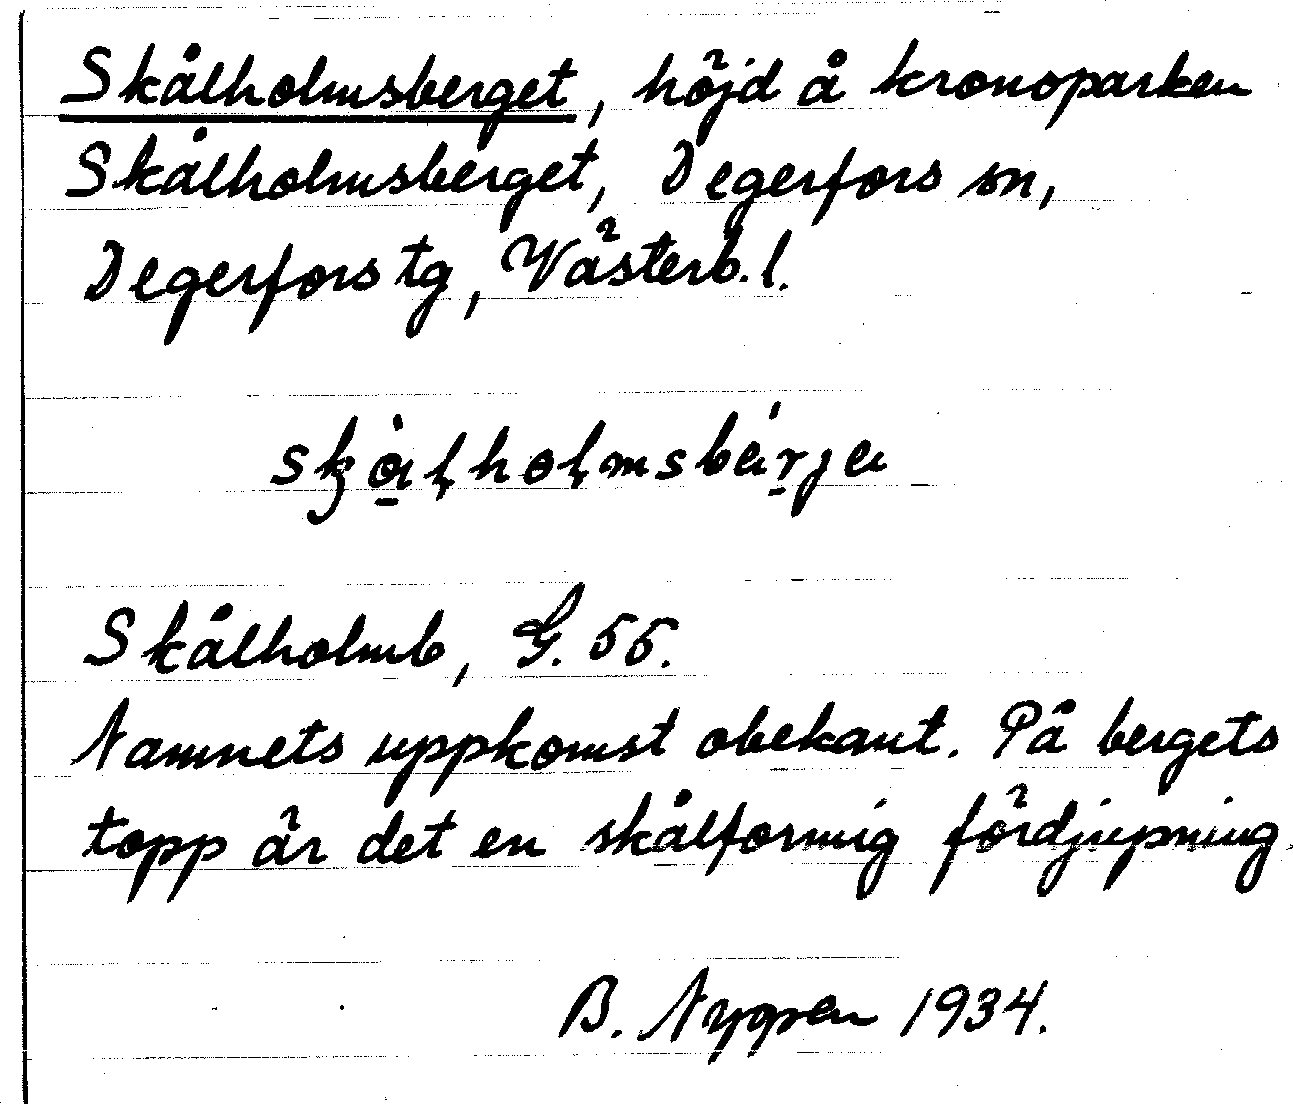 Skålholmsberget, höjd å kronoparken
Skålholmsberget, Degerfors sn,
Degerfors tg, Västerb. l.
skålholmsbärja
Skålholmb, G. 55.
Namnets uppkomst obekant. På bergets
topp är det en skålformig fördjupning.
B. Nygren 1934.